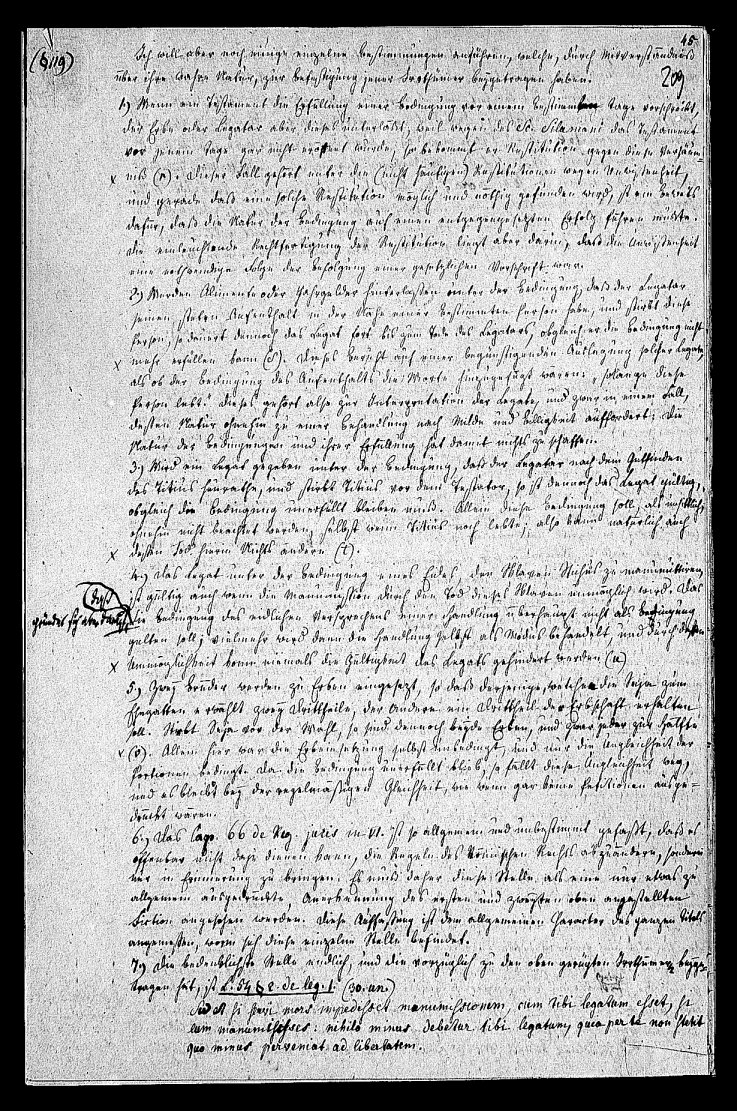 45
209
(§.119)
Ich will aber noch einige einzelne Bestimmungen anführen, welche, durch Misverständniß
über ihre wahre Natur, zur Befestigung jener Irrthümer beygetragen haben.
1.) Wenn ein Testament die Erfüllung einer Bedingung vor einem bestimmten Tage vorschreibt,
der Erbe oder Legatar aber dieses unterläßt, weil wegen des Sc. Silaniani das Testament
vor jenem Tage gar nicht eröffnet wurde, so bekommt er Restitution gegen diese Versäum-
niß (r). Dieser Fall gehört unter die (nicht häufigen) Restitutionen wegen Unwissenheit,
und gerade daß eine solche Restitution möglich und nöthig gefunden wird, ist ein Beweis
dafür, daß die Natur der Bedingung auf einen entgegengesetzten Erfolg führen mußte.
Die einleuchtende Rechtfertigung der Restitution liegt aber darin, daß die Unwissenheit
eine nothwendige Folge der Befolgung einer gesetzlichen Vorschrift war.
2.) Werden Alimente oder Jahrgelder hinterlassen unter der Bedingung, daß der Legatar
seinen steten Aufenthalt in der Nähe einer bestimmten Person habe, und stirbt diese
Person, so dauert dennoch das Legat fort bis zum Tode des Legatars, obgleich er die Bedingung nicht
mehr erfüllen kann (s). Dieses beruht auf einer begünstigenden Auslegung solcher Legate,
als ob der Bedingung des Aufenthalts die Worte hinzugefügt wären: „solange diese
Person lebt". Dieses gehört also zur Interpretation der Legate, und zwar in einem Fall,
dessen Natur ohnehin zu einer Behandlung nach Milde und Billigkeit auffordert; die
Natur der Bedingungen und ihrer Erfüllung hat damit nichts zu schaffen.
3.) Wird ein Legat gegeben unter der Bedingung, daß der Legatar nach dem Gutfinden
des Titius heurathe, und stirbt Titius vor dem Testator, so ist dennoch das Legat gültig,
obgleich die Bedingung unerfüllt bleiben muß. Allein diese Bedingung soll, als unsittlich,
ohnehin nicht beachtet werden, selbst wenn Titius noch lebte; also kann natürlich auch
dessen Tod hierin Nichts ändern (t).
4.) Das Legat unter der Bedingung eines Eides, den Sklaven Stichus zu manumittiren,
ist gültig auch wenn die Manumission durch den Tod dieses Sklaven unmöglich wird. Das
die Bedingung des eidlichen Versprechens einer Handlung überhaupt nicht als Bedingung
gelten soll; vielmehr wird dann die Handlung selbst als Modus behandelt, und durch dessen
Unmöglichkeit kann niemals die Gültigkeit des Legats gehindert werden (u)
5.) Zwey Brüder werden zu Erben eingesetzt, so daß derjenige, welcher die Seja zum
Ehegatten erwählt zwey Drittheile, der Andere ein Drittheil der Erbschaft erhalten
soll. Stirbt Seja vor der Wahl, so sind dennoch beyde Erben, und zwar jeder zur Hälfte
(v). Allein hier war die Erbeinsetzung selbst unbedingt, und nur die Ungleichheit der
Portionen bedingt. Da die Bedingung unerfüllt blieb, so fällt diese Ungleichheit weg,
und es bleibt bey der regelmäßigen Gleichheit, wie wenn gar keine Portionen ausge-
drückt wären.
6.) Das Cap. 66 de Reg. juris in VI. ist so allgemein und unbestimmt gefaßt, daß es
offenbar nicht dazu dienen kann, die Regeln des Römischen Rechts abzuändern, sondern
nur in Erinnerung zu bringen. Es muß daher diese Stelle als eine nur etwas zu
allgemein ausgedrückte, Anerkennung des ersten und zweyten oben angestellten
Fiction angesehen werden. Diese Auffassung ist dem allgemeinen Character des ganzen Titels
angemessen, worin sich diese einzelne Stelle befindet.
7.) Die bedenklichste Stelle endlich, und die vorzüglich zu den oben gerügten Irrthümern beyge-
tragen hat, ist L. 54 § 2 de leg. 1. (30. un.)
Sed et si servi mors impedisset manumissionem, cum tibi legatum esset, si
eum manumisisses: nihilo minus debetur tibi legatum, quia per te non stetit
quo minus perveniat ad libertatem.